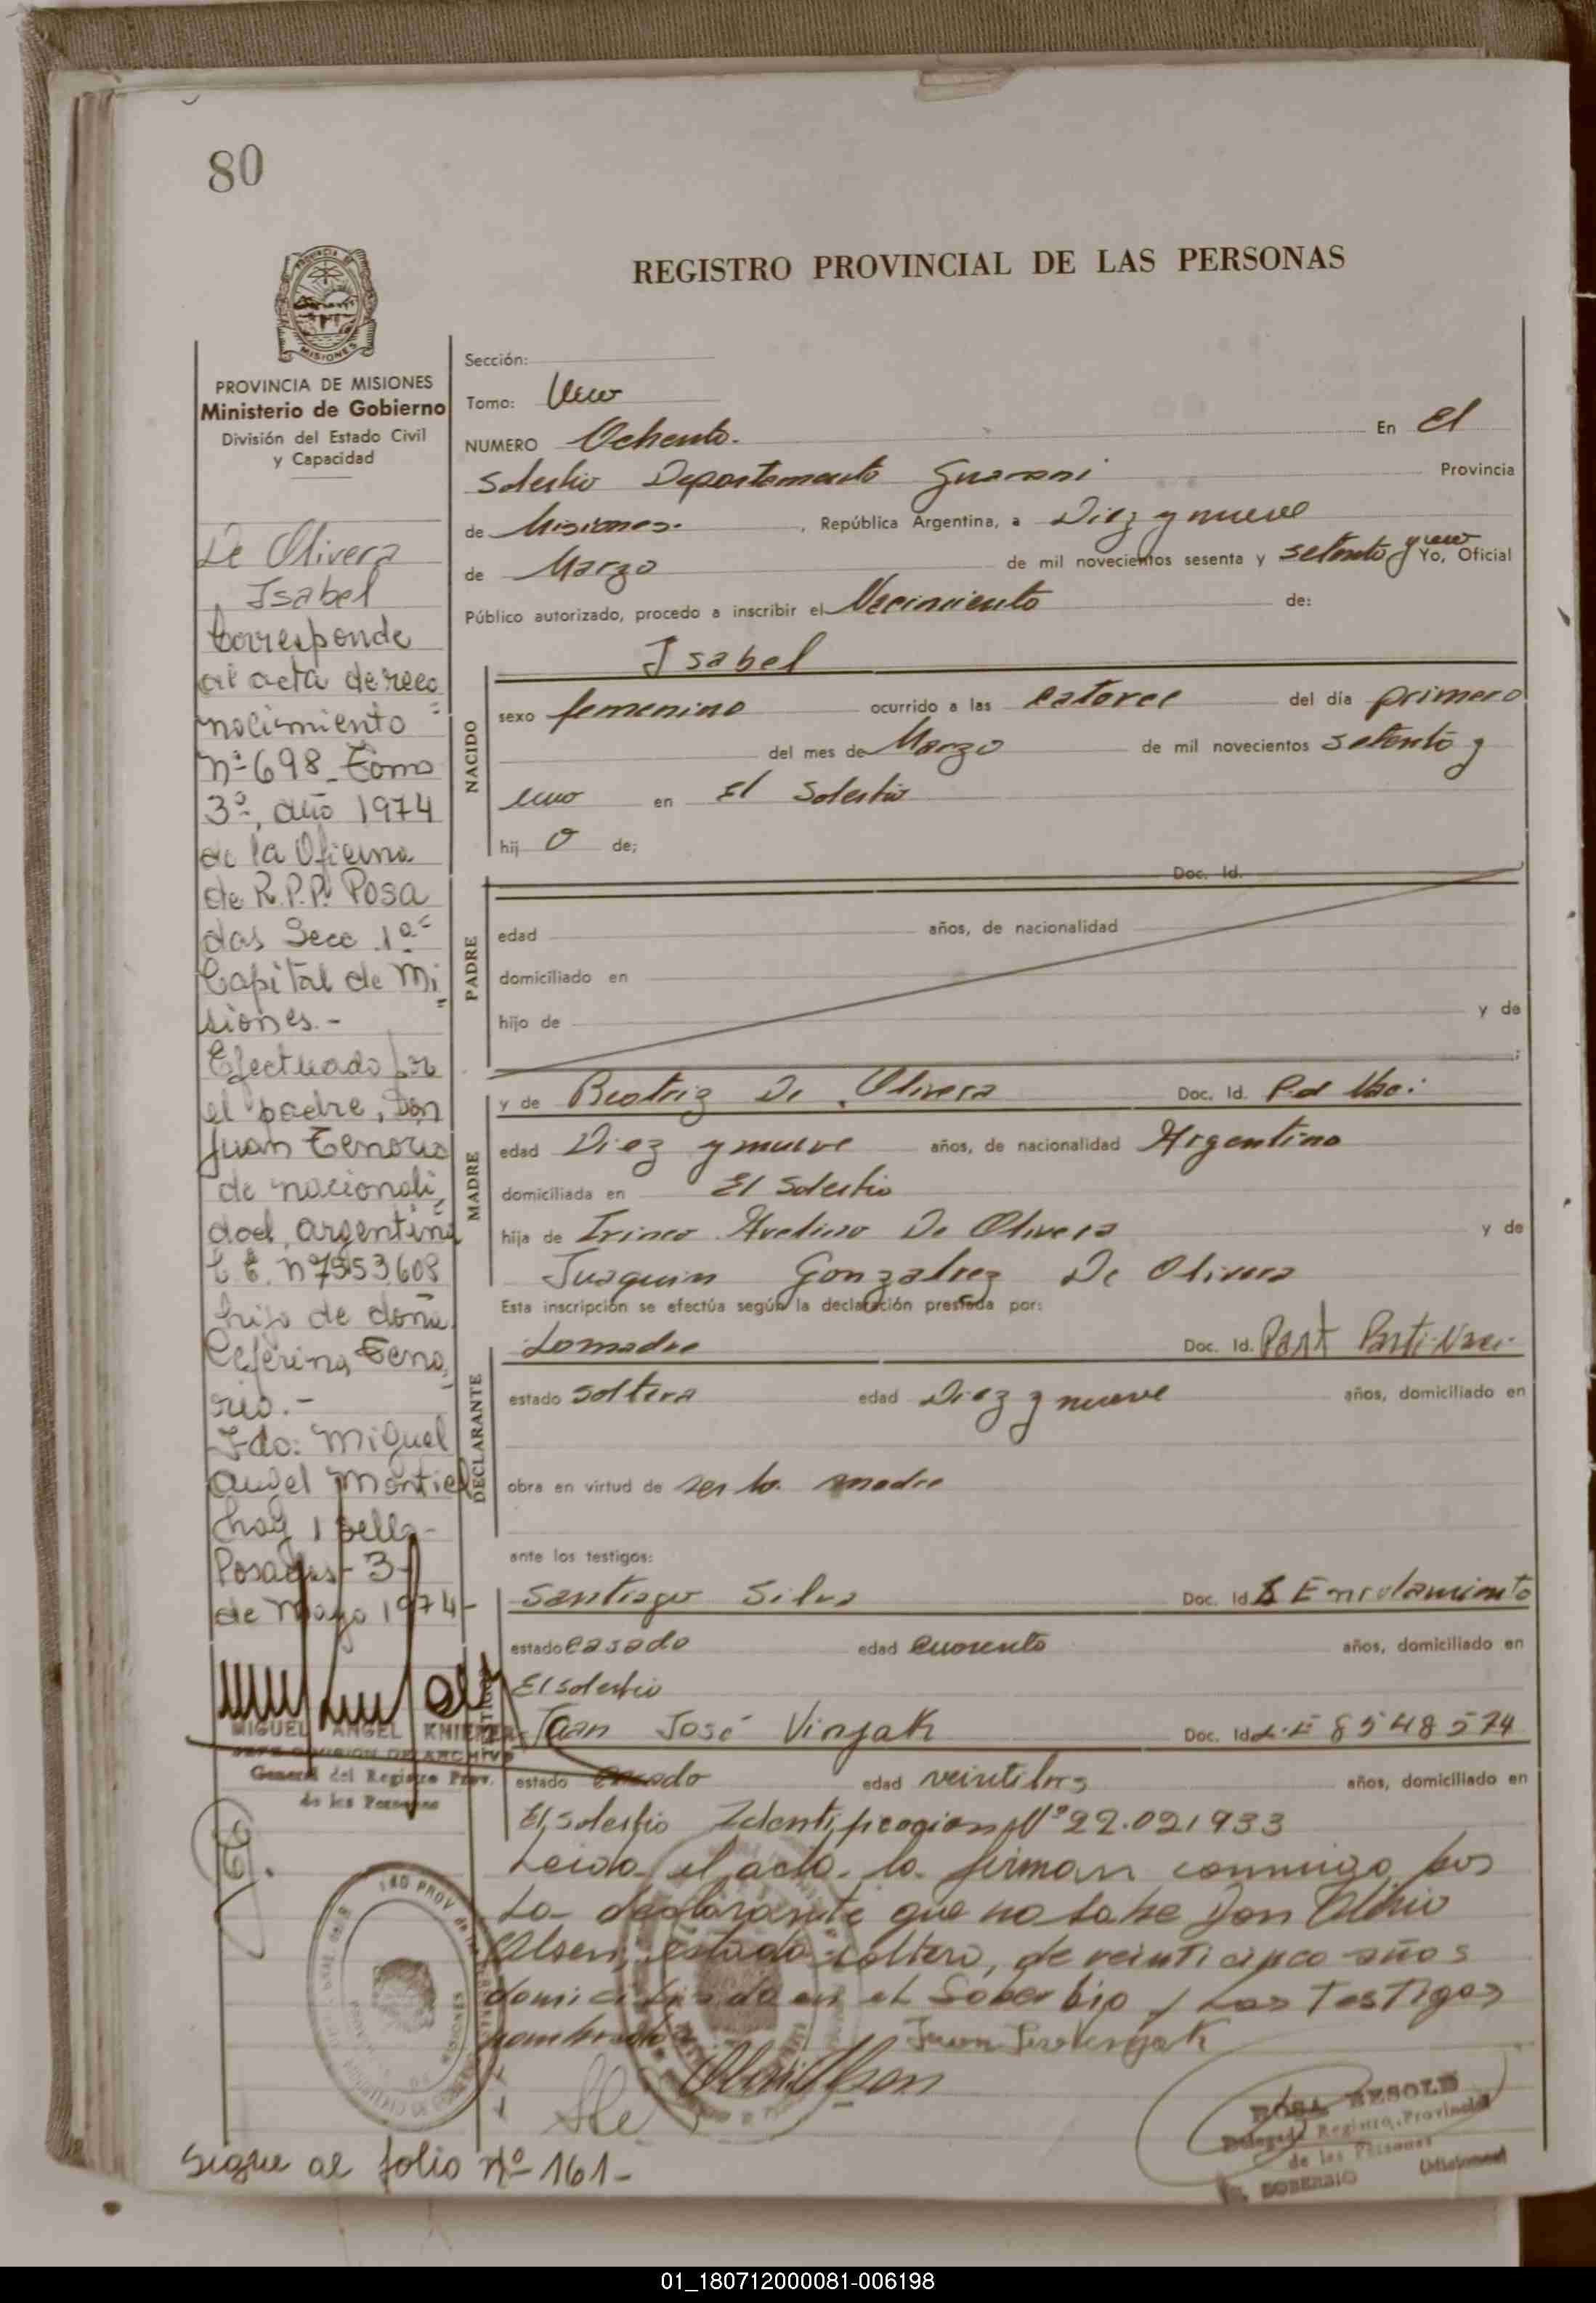 80
REGISTRO PROVINCIAL DE LAS PERSONAS
PROVINCIA DE MISIONES
Ministerio de Gobierno
División del Estado Civil
y Capacidad
De Olivera
Isabel
Corresponde
al acta de reco
nocimiento
nº 698 Tomo
3º, año 1974
de la Oficina
de R.P.P. Posa
das Secc 1ª
Capital de Mi
siones.-
Efectuado por
el padre, Don
Juan Tenorio
de nacionali
dad argentina
hijo de doña
Ceferina Teno
rio.-
Fdo: Miguel
Angel Montiel
hay 1 sello-
Posadas - 3 -
de Mayo 1974-
MIGUEL ANGEL
JEFE DIVISION DE ARCHIVO
General del Registro Prov.
de las Personas
Sección:
Tomo: Uno
NUMERO Ochenta.- En El
Soberbio Departamento Guarani Provincia
de Misiones.- , República Argentina, a Diez y nueve
de Marzo de mil novecientos sesenta y setenta y uno Yo, Oficial
Público autorizado, procedo a inscribir el Nacimiento de:
Isabel
NACIDO
sexo femenino ocurrido a las catorce del día primero
del mes de Marzo de mil novecientos setenta y
uno en El Soberbio
hij o de;
PADRE
Doc. Id.
edad años, de nacionalidad
domiciliado en
hijo de y de
MADRE
y de Beatriz De Olivera Doc. Id. P.d Naci.
edad Diez y nueve años, de nacionalidad Argentina
domiciliada en El Soberbio
hija de Irineo Avelino De Olivera y de
Juaquin Gonzalvez De Olivera
Esta inscripción se efectúa según la declaración prestada por:
DECLARANTE
La madre Doc. Id. Part Parti. Naci.
estado soltera edad Diez y nueve años, domiciliado en
obra en virtud de ser la madre
ante los testigos:
Santiago Silva Doc. Id. L Enrolamiento
estado casado edad cuarenta años, domiciliado en
El soberbio
Juan José Vinjak Doc. Id. L.E 8548574
estado casado edad veintitres años, domiciliado en
El soberbio Identificacion Nº 22.021933
Leida el acta la firman conmigo por
La declarante que no sabe Don
Olsen, estado soltero, de veinticinco años
domiciliado en el Soberbio y Los Testigos
nombrado
ROSA BESOLD
Delegada Registro Provincial
de las Personas
EL SOBERBIO (Misiones)
Sigue al folio nº 161-
01_180712000081-006198